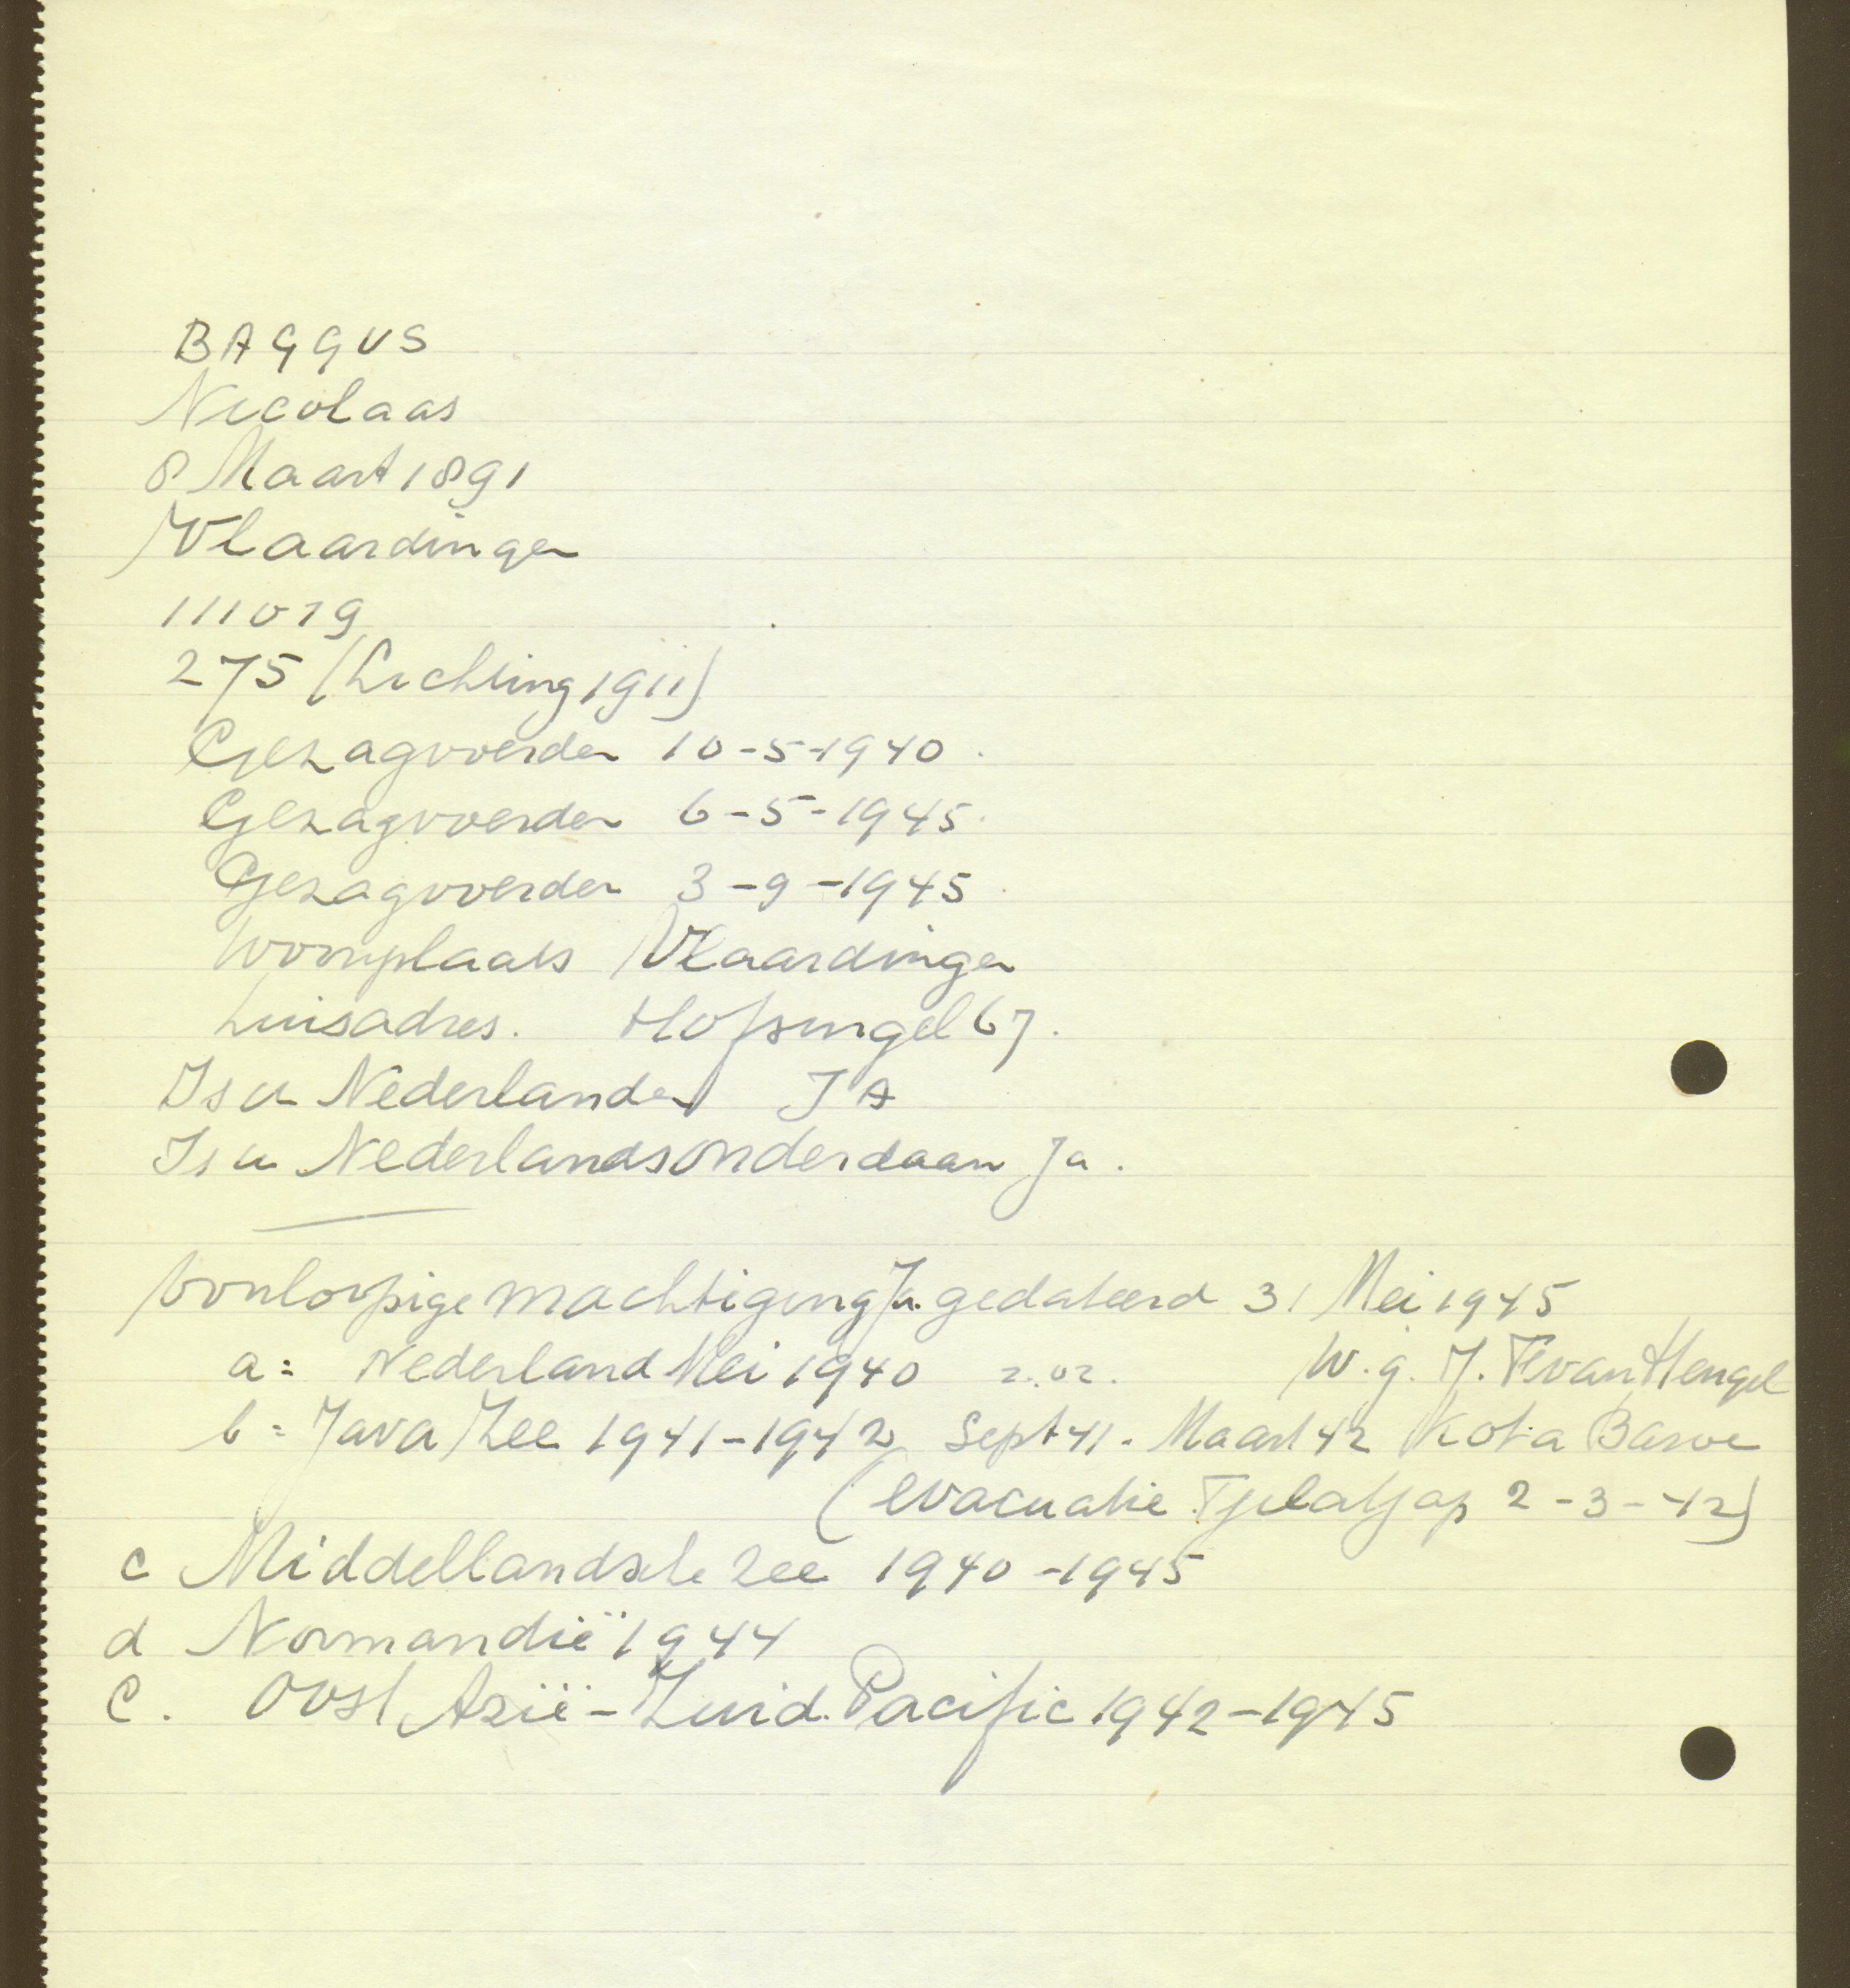 BAGGUS
Nicolaas
8 Maart 1891
Vlaardingen
111019
275 (Lichting 1911)
Gezagvoerder 10-5-1940.
Gezagvoerder 6-5-1945.
Gezagvoerder 3-9-1945
Woonplaats Vlaardingen
huisadres. Hofsingel 67.
Is u Nederlander JA
Is u Nederlandsonderdaan Ja.
Voorloopige machtiging Ja. gedateerd 31 Mei 1945
a: Nederland Mei 1940 z.oz. W.g. J. F. van Hengel
b: Java Zee 1941-1942 Sept 41 - Maart 42 Kota Baroe
(evacuatie Tjilatjap 2-3-42)
c Middellandsche Zee 1940-1945
d Normandië 1944
e. Oost Azië - Zuid. Pacific 1942-1945